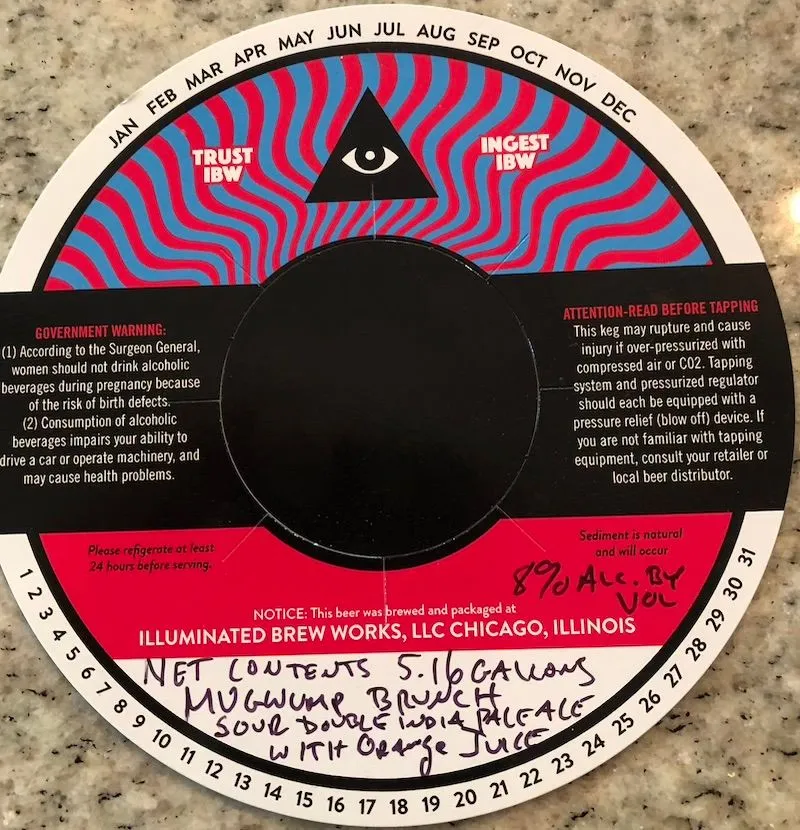 JAN FEB MAR APR MAY JUN JUL AUG SEP OCT NOV DEC
TRUST
IBW
INGEST
IBW
GOVERNMENT WARNING:
(1) According to the Surgeon General,
women should not drink alcoholic
beverages during pregnancy because
of the risk of birth defects.
(2) Consumption of alcoholic
beverages impairs your ability to
drive a car or operate machinery, and
may cause health problems.
ATTENTION-READ BEFORE TAPPING
This keg may rupture and cause
injury if over-pressurized with
compressed air or CO2. Tapping
system and pressurized regulator
should each be equipped with a
pressure relief (blow off) device. If
you are not familiar with tapping
equipment, consult your retailer or
local beer distributor.
Please refigerate at least
24 hours before serving.
Sediment is natural
and will occur
8% ALC. BY
VOL
NOTICE: This beer was brewed and packaged at
ILLUMINATED BREW WORKS, LLC CHICAGO, ILLINOIS
NET CONTENTS 5.16 GALLONS
MUGWUMP BRUNCH
SOUR DOUBLE INDIA PALE ALE
WITH ORANGE JUICE
1 2 3 4 5 6 7 8 9 10 11 12 13 14 15 16 17 18 19 20 21 22 23 24 25 26 27 28 29 30 31